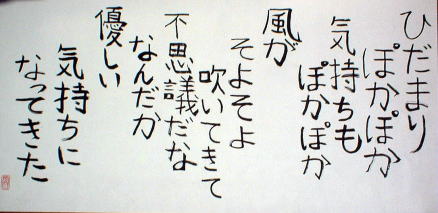 ひだまり
ぽかぽか
気持ちも
ぽかぽか
風が
そよそよ
吹いてきて
不思議だな
なんだか
優しい
気持ちに
なってきた